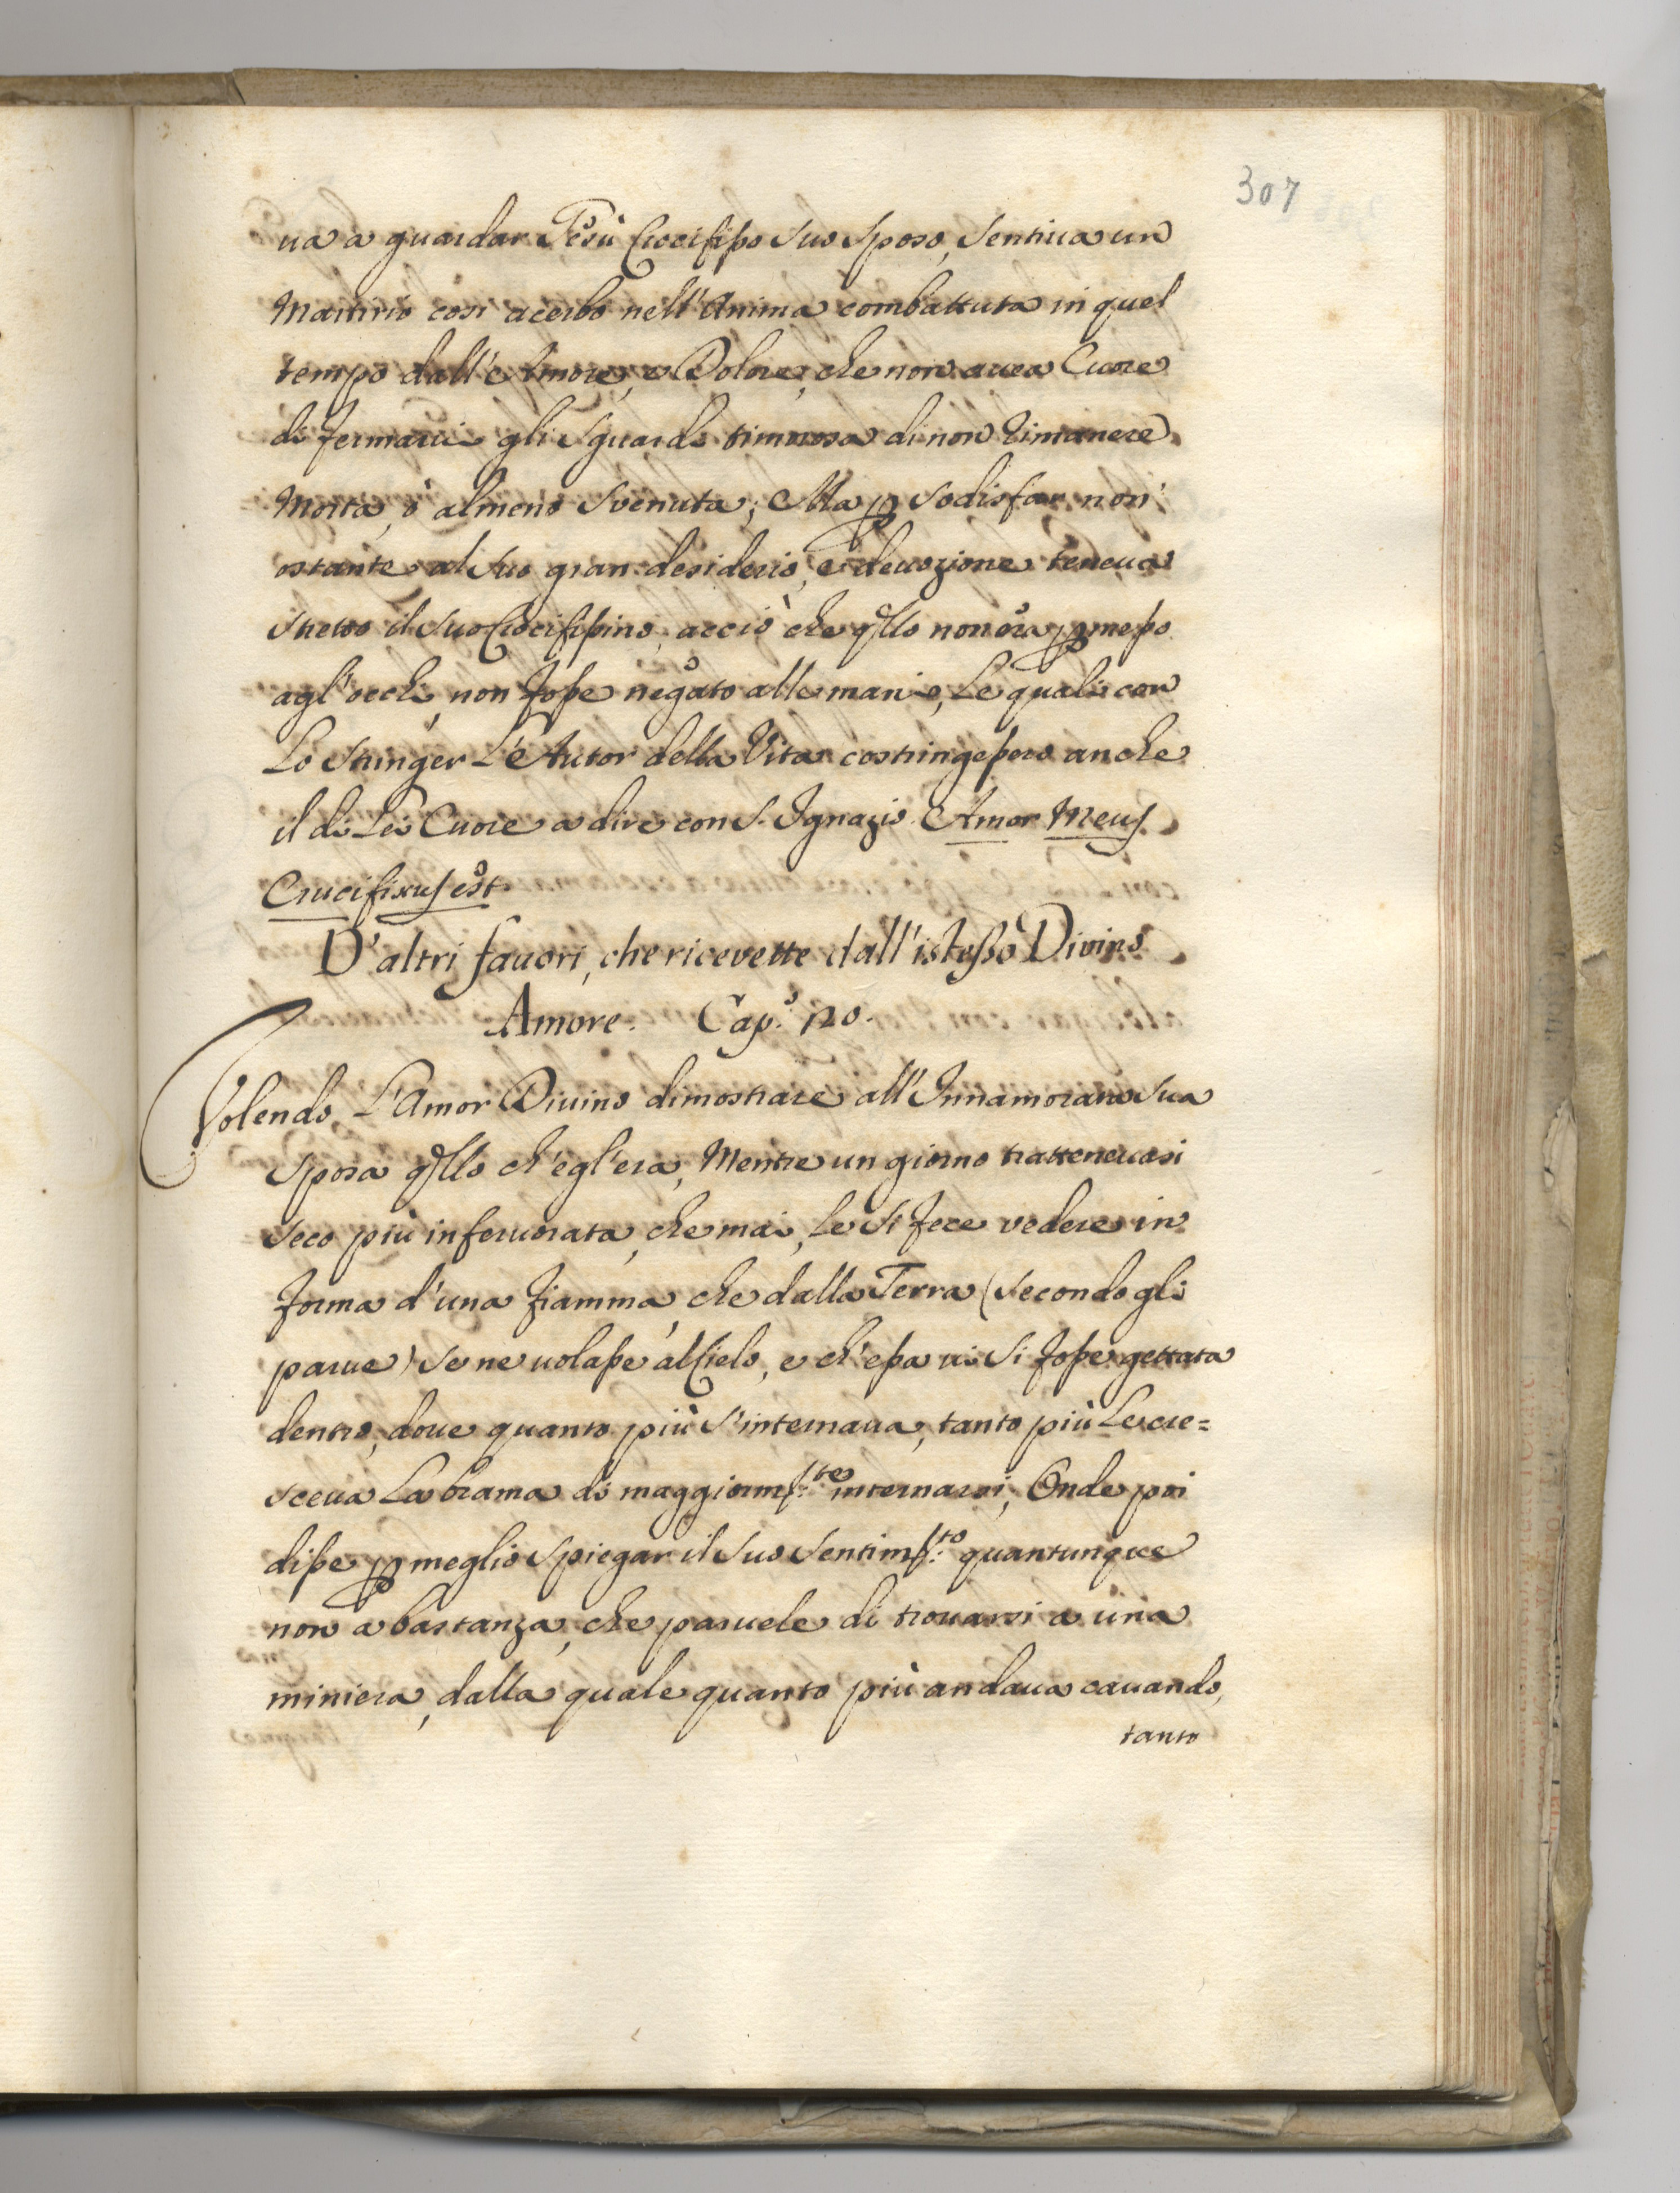 307
ua a guardar Giesù Crocifisso suo Sposo, sentiua un
Martirio cosi acerbo nell'Anima combattuta in quel
tempo dall'Amore, e Dolore, che non auea Cuore
di fermarui gli sguardi timorosa di non rimanere
Morta, ò almeno svenuta; Ma p sodisfar non
ostante al suo gran desiderio, e deuozione teneua
stretto il suo Crocifissino, acciò che qllo non era pmesso
agl'occhi, non fosse negato alle mani, Le quali con
Lo stringer L'Autor della Vita costringessero anche
il di Lei Cuore a dire con S. Ignazio Amor Meus
Crucifixus est.
D'altri fauori, che ricevette dall'istesso Divino
Amore. Cap.º 120.
Volendo L'Amor Diuino dimostrare all'Innamorata sua
Sposa qllo ch'egl'era, Mentre un giorno tratteneuasi
seco più inferuorata, che mai, Le si fece vedere in
forma d'una fiamma, che dalla Terra (secondo gli
parue) se ne uolasse al Cielo, e ch'essa ui si fosse gettata
dentro, doue quanto più s'internaua, tanto più Le cre=
sceua La brama di maggiorm.te internarsi, Onde poi
disse p meglio spiegar il suo sentim.to quantunque
non a bastanza, che paruele di trouarsi a una
miniera, dalla quale quanto più andaua cauando,
tanto